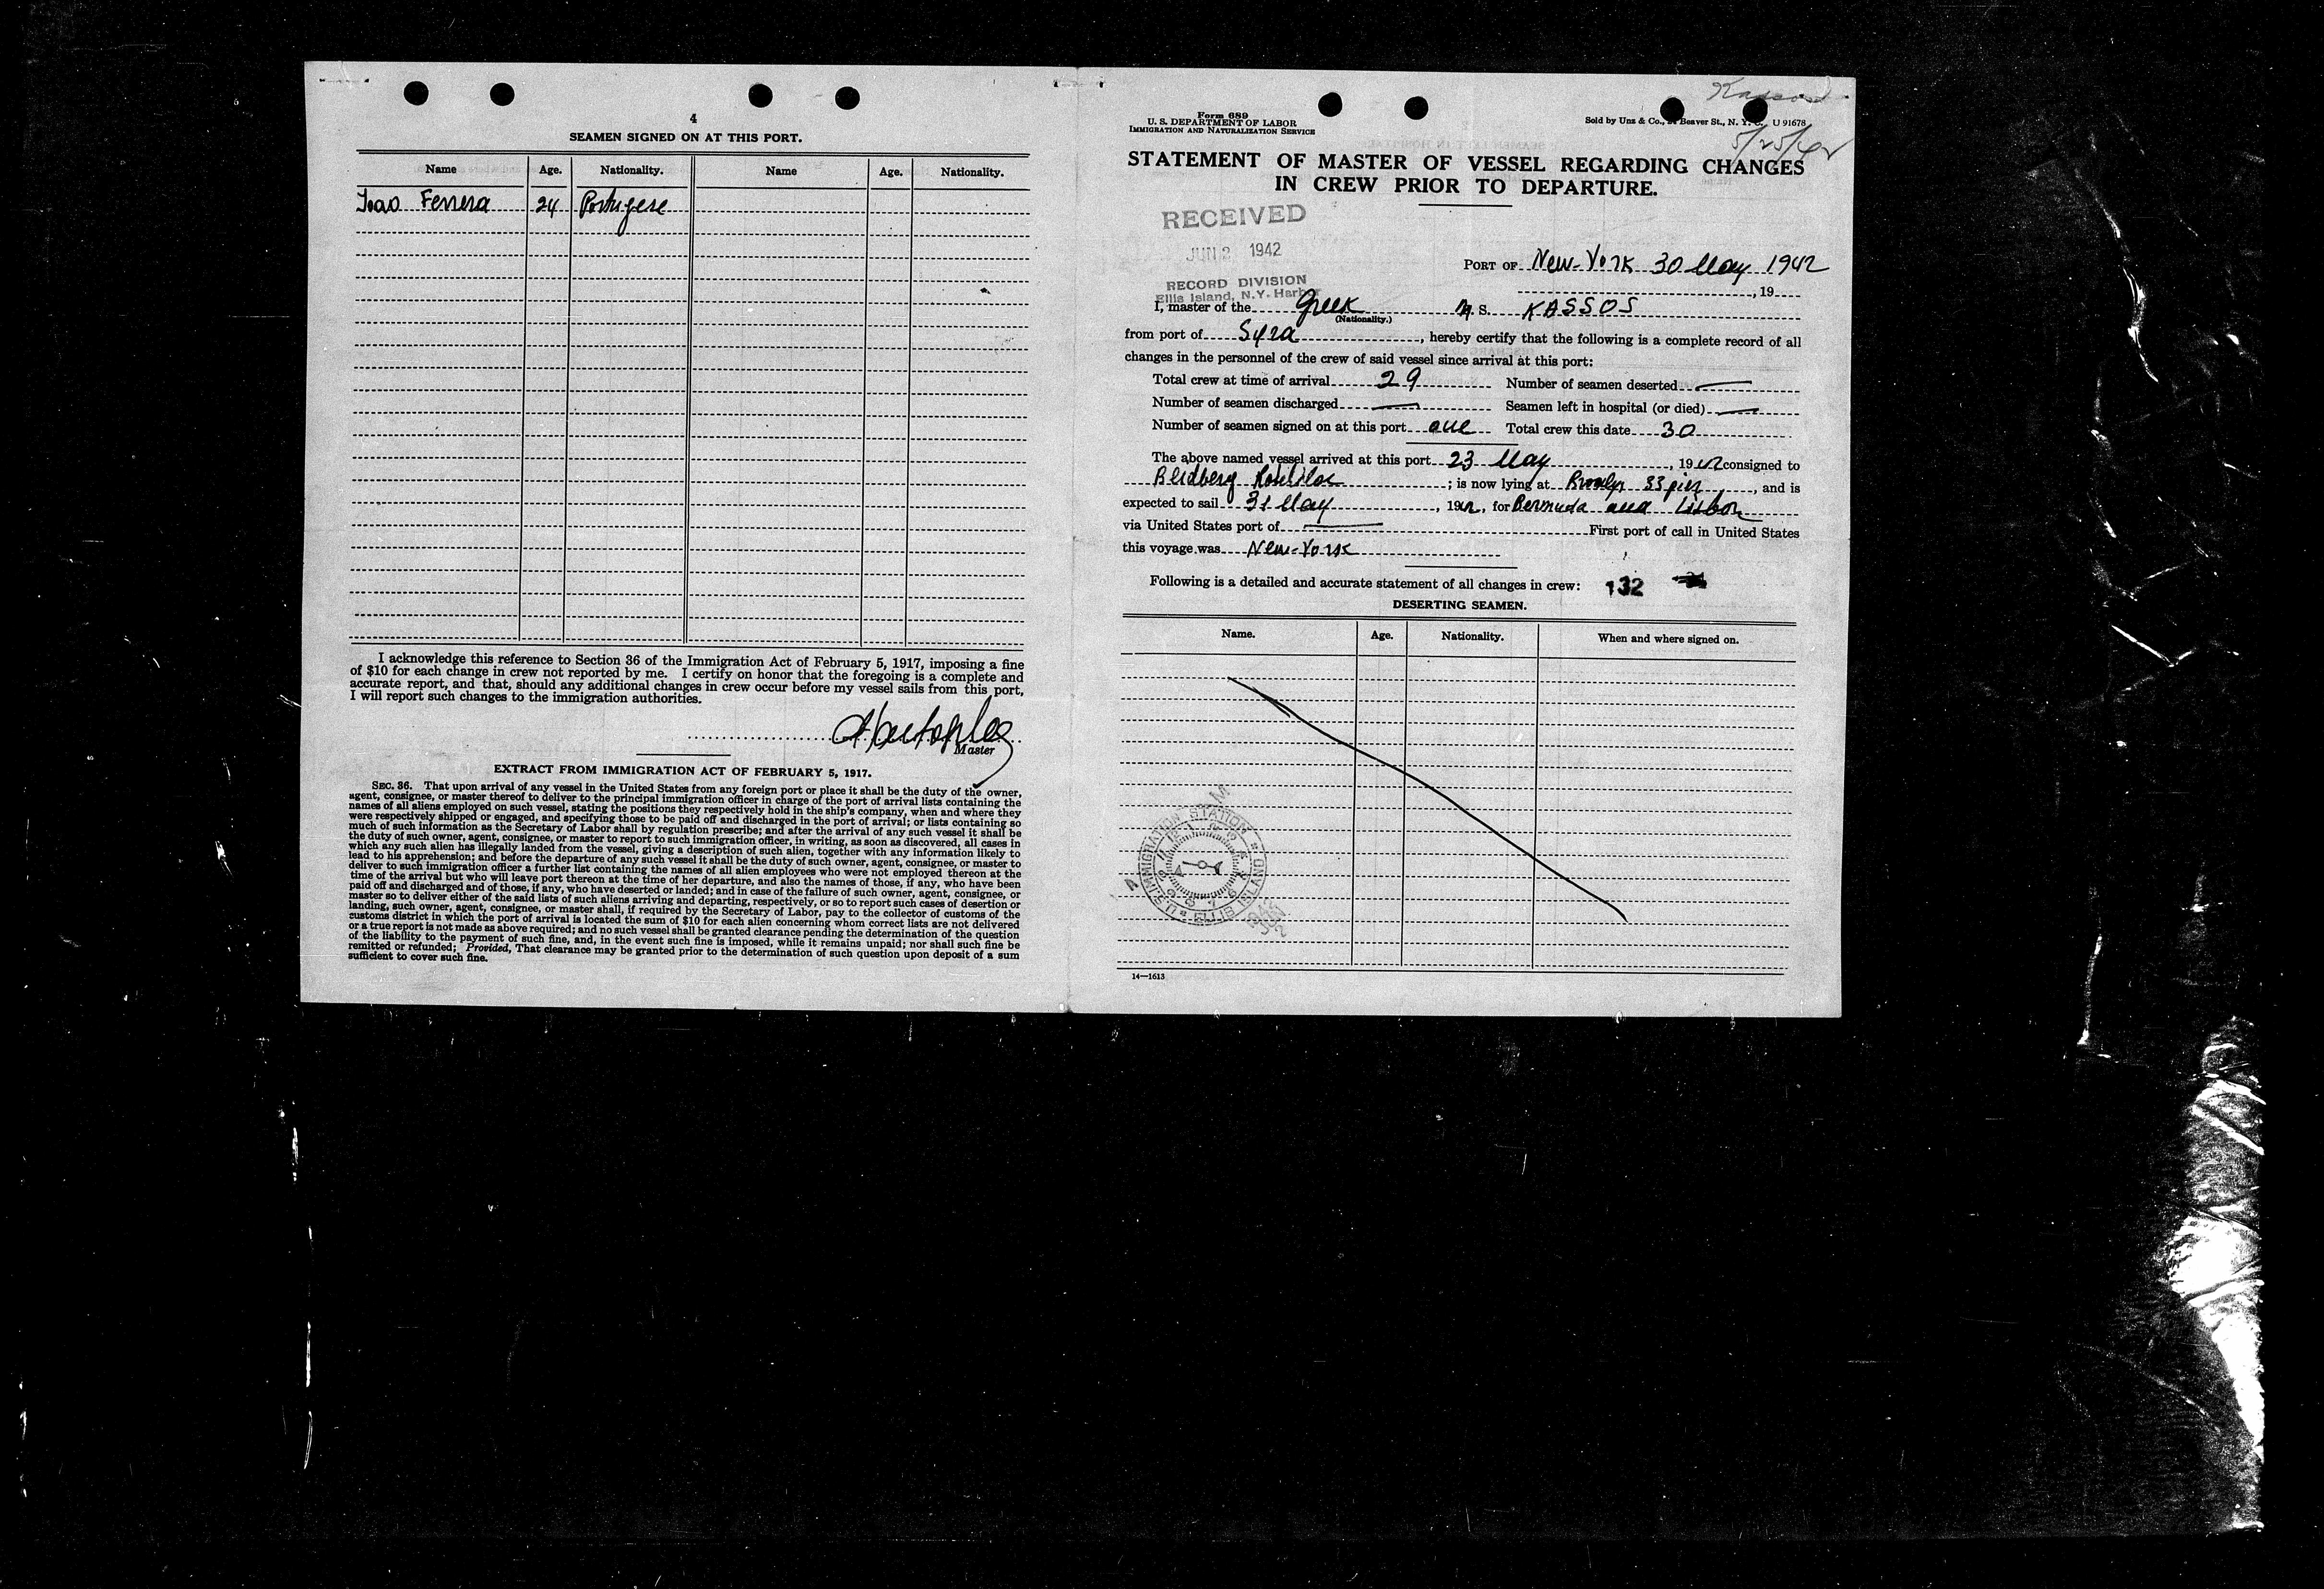 4
SEAMEN SIGNED ON AT THIS PORT.
Name Age. Nationality. Name Age. Nationality.
Joao Ferrera 24 Portugese
I acknowledge this reference to Section 36 of the Immigration Act of February 5, 1917, imposing a fine
of $10 for each change in crew not reported by me. I certify on honor that the foregoing is a complete and
accurate report, and that, should any additional changes in crew occur before my vessel sails from this port,
I will report such changes to the immigration authorities.
Master
EXTRACT FROM IMMIGRATION ACT OF FEBRUARY 5, 1917.
SEC. 36. That upon arrival of any vessel in the United States from any foreign port or place it shall be the duty of the owner,
agent, consignee, or master thereof to deliver to the principal immigration officer in charge of the port of arrival lists containing the
names of all aliens employed on such vessel, stating the positions they respectively hold in the ship's company, when and where they
were respectively shipped or engaged, and specifying those to be paid off and discharged in the port of arrival; or lists containing so
much of such information as the Secretary of Labor shall by regulation prescribe; and after the arrival of any such vessel it shall be
the duty of such owner, agent, consignee, or master to report to such immigration officer, in writing, as soon as discovered, all cases in
which any such alien has illegally landed from the vessel, giving a description of such alien, together with any information likely to
lead to his apprehension; and before the departure of any such vessel it shall be the duty of such owner, agent, consignee, or master to
deliver to such immigration officer a further list containing the names of all alien employees who were not employed thereon at the
time of the arrival but who will leave port thereon at the time of her departure, and also the names of those, if any, who have been
paid off and discharged and of those, if any, who have deserted or landed; and in case of the failure of such owner, agent, consignee, or
master so to deliver either of the said lists of such aliens arriving and departing, respectively, or so to report such cases of desertion or
landing, such owner, agent, consignee, or master shall, if required by the Secretary of Labor, pay to the collector of customs of the
customs district in which the port of arrival is located the sum of $10 for each alien concerning whom correct lists are not delivered
or a true report is not made as above required; and no such vessel shall be granted clearance pending the determination of the question
of the liability to the payment of such fine, and, in the event such fine is imposed, while it remains unpaid; nor shall such fine be
remitted or refunded; Provided, That clearance may be granted prior to the determination of such question upon deposit of a sum
sufficient to cover such fine.
Kassos
5/25/42
Form 689
U. S. DEPARTMENT OF LABOR
IMMIGRATION AND NATURALIZATION SERVICE
Sold by Unz & Co., Beaver St., N. Y. C. U 91678
STATEMENT OF MASTER OF VESSEL REGARDING CHANGES
IN CREW PRIOR TO DEPARTURE.
RECEIVED
JUN 2 1942
RECORD DIVISION
Ellis Island, N.Y. Harbor
PORT OF New-York 30 May 1942
, 19
I, master of the Greek M. S. KASSOS
(Nationality.)
from port of Syra, hereby certify that the following is a complete record of all
changes in the personnel of the crew of said vessel since arrival at this port:
Total crew at time of arrival 29 Number of seamen deserted —
Number of seamen discharged — Seamen left in hospital (or died) —
Number of seamen signed on at this port one Total crew this date 30
The above named vessel arrived at this port 23 May, 1942 consigned to
; is now lying at 33 pier, and is
expected to sail 31 May, 1942, for Bermuda and Lisbon
via United States port of — First port of call in United States
this voyage was New-York
Following is a detailed and accurate statement of all changes in crew: 132
DESERTING SEAMEN.
Name. Age. Nationality. When and where signed on.
U.S. IMMIGRATION STATION
ELLIS ISLAND
14—1613